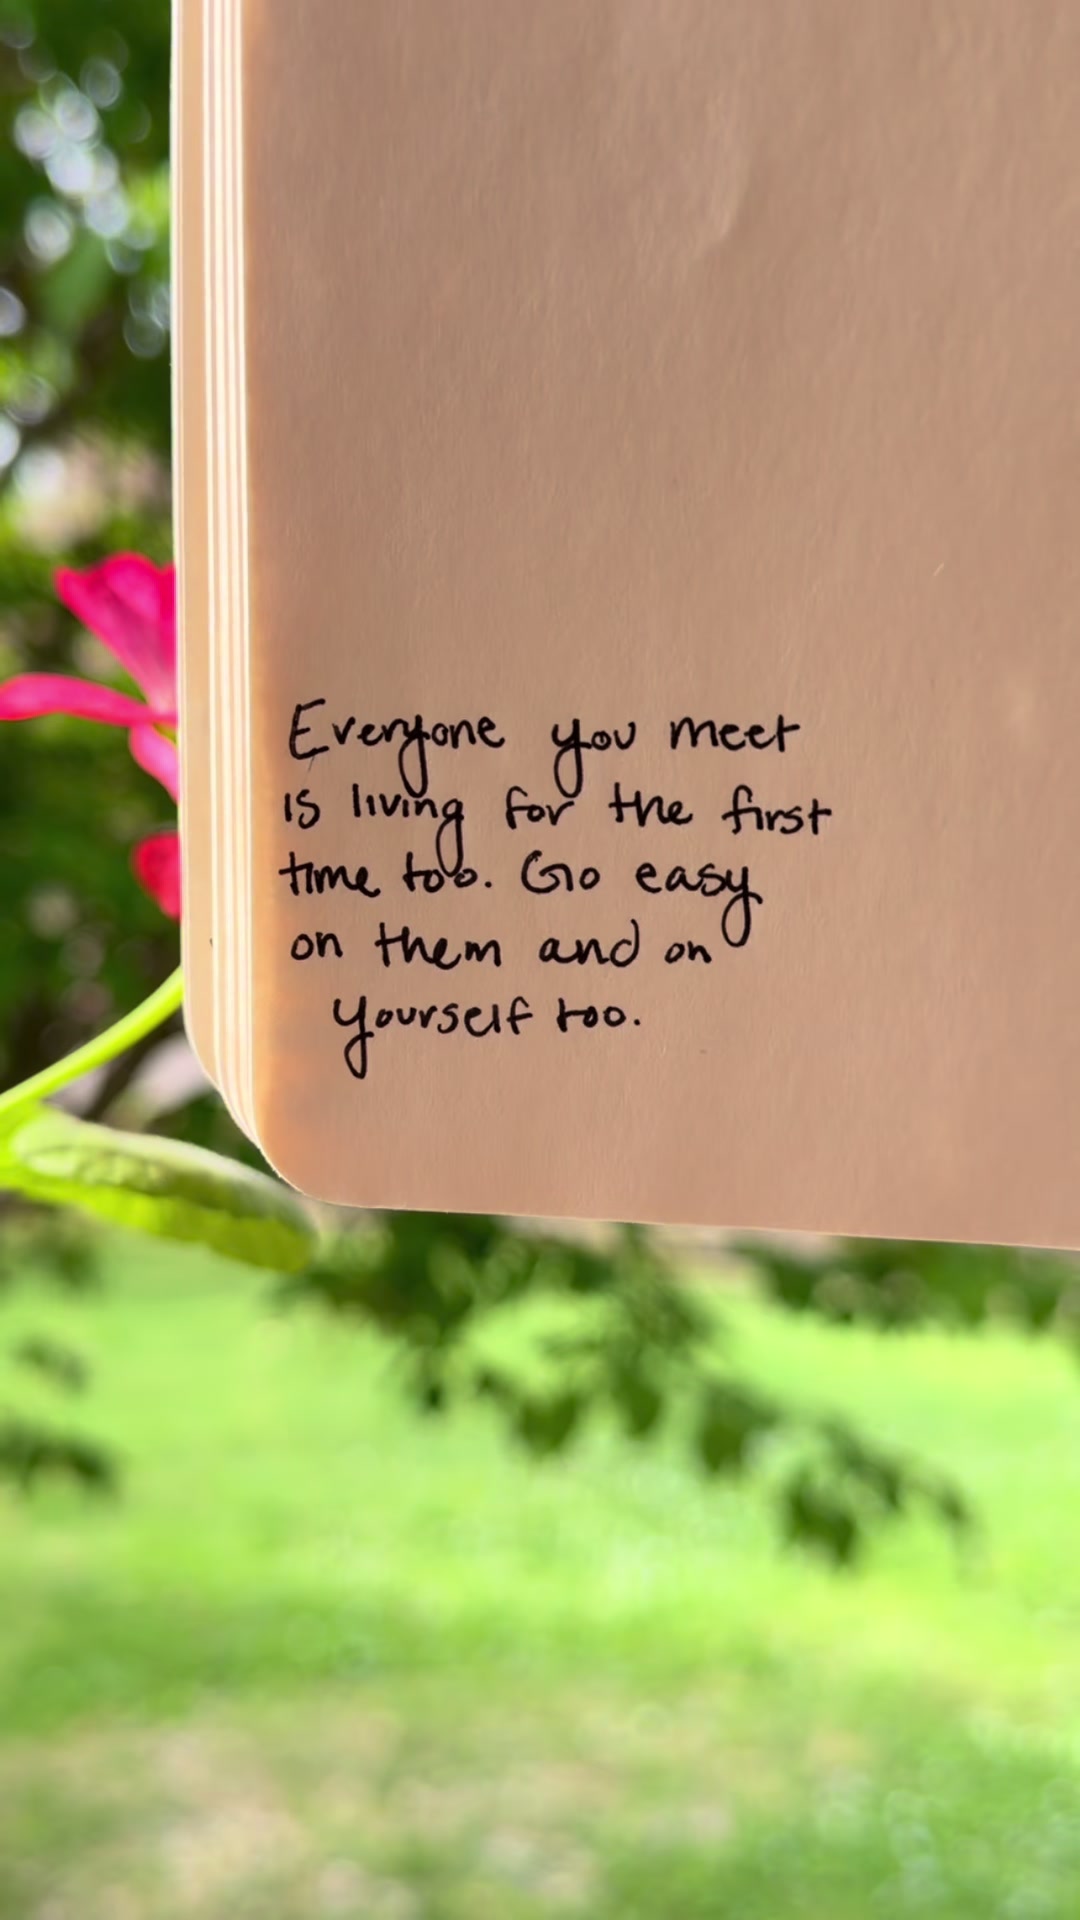 Everyone you meet
is living for the first
time too. Go easy
on them and on
yourself too.